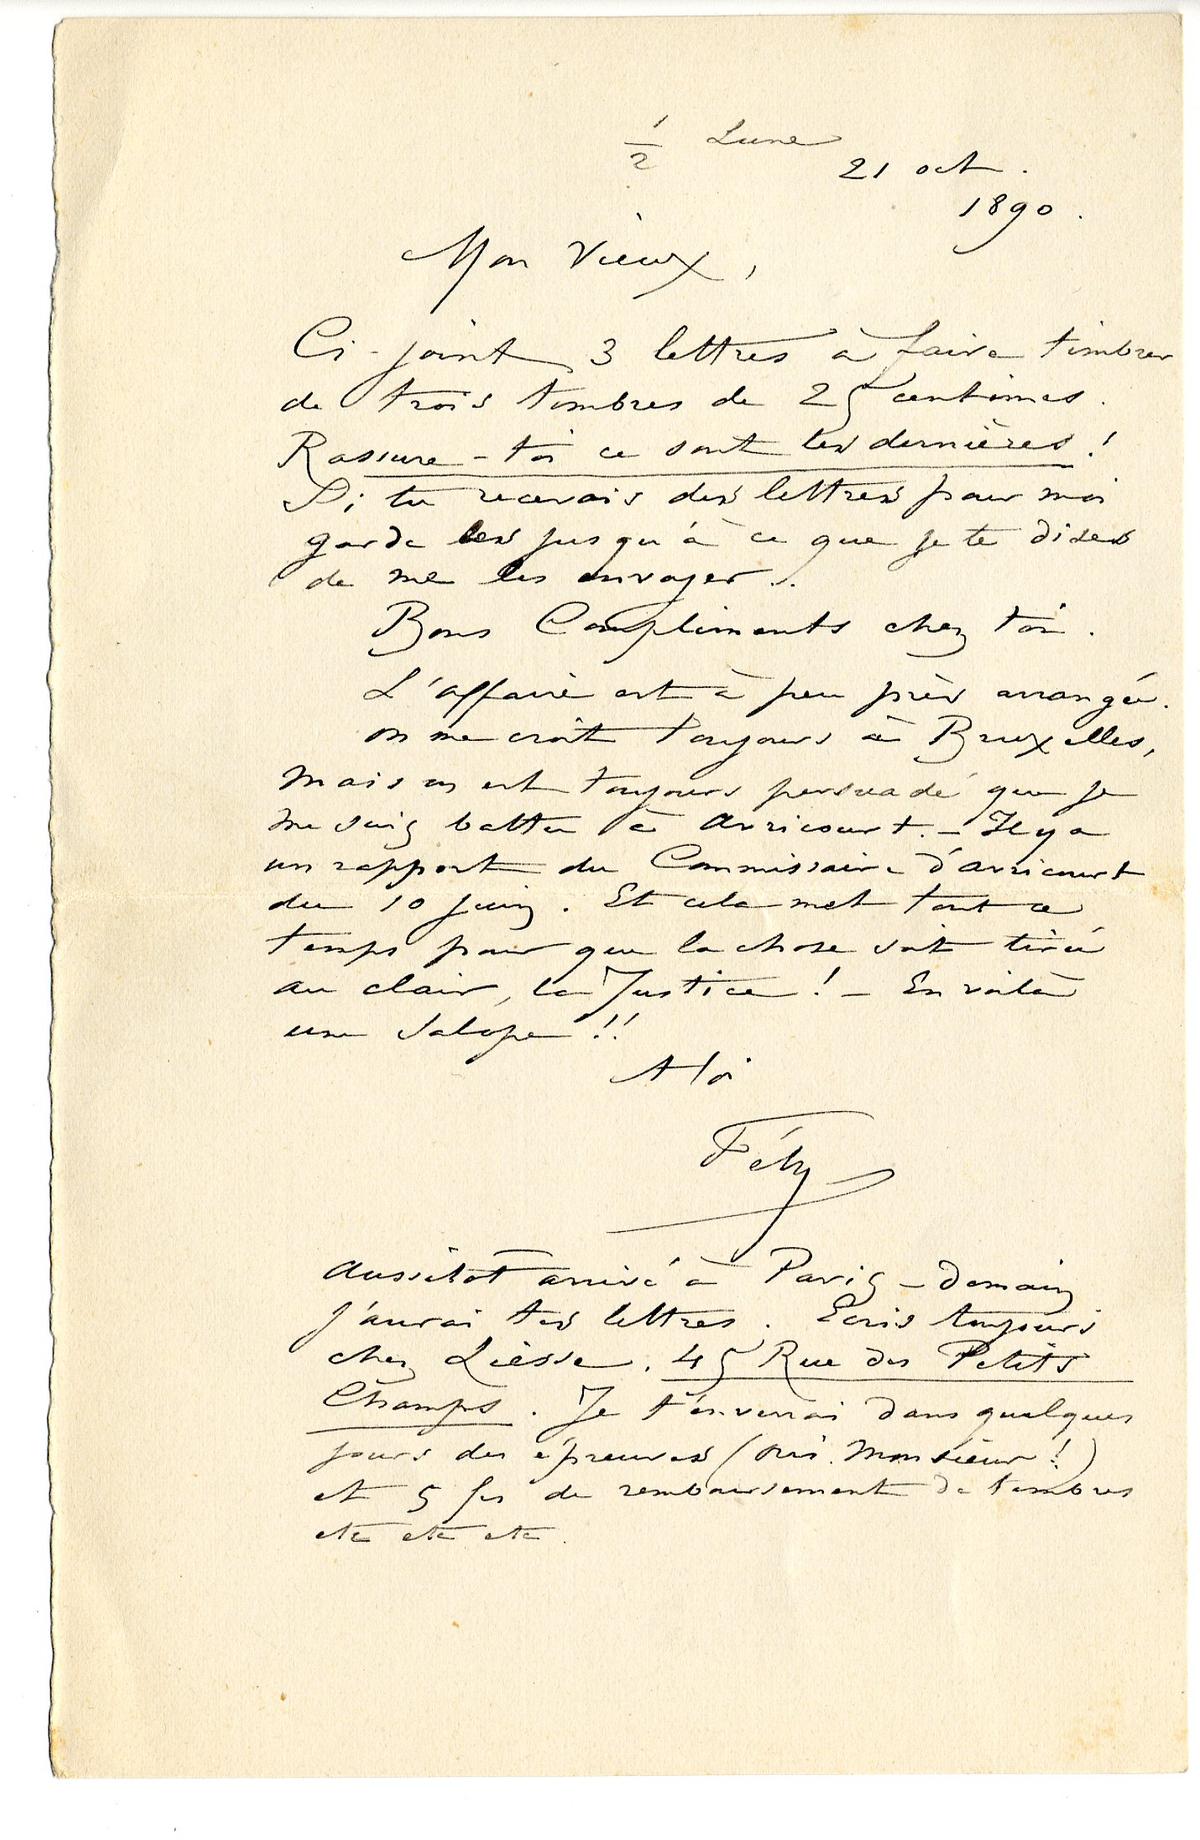 1/2 Lune
21 oct.
1890.
Mon Vieux,
Ci-joint 3 lettres à faire timbrer
de trois timbres de 25 centimes.
Rassure-toi ce sont les dernières !
Si tu recevais des lettres pour moi
garde les jusqu'à ce que je te dises
de me les envoyer..
Bons Compliments chez toi.
L'affaire est à peu près arrangée.
on me croit toujours à Bruxelles,
Mais on est toujours persuadé que je
me suis battu à Avricourt. – Il y a
un rapport du Commissaire d'avricourt
du 10 juin. Et cela met tout ce
temps pour que la chose soit tirée
au clair, la Justice ! – En voilà
une Salope !!
A toi
Fély
Aussitot arrivé à Paris – demain
j'aurai tes lettres. Ecris toujours
chez Liesse. 45 Rue des Petits
Champs. Je t'enverrai dans quelques
jours des épreuves (oui. Monsieur !)
et 5 frs de remboursement de timbres
etc etc etc.